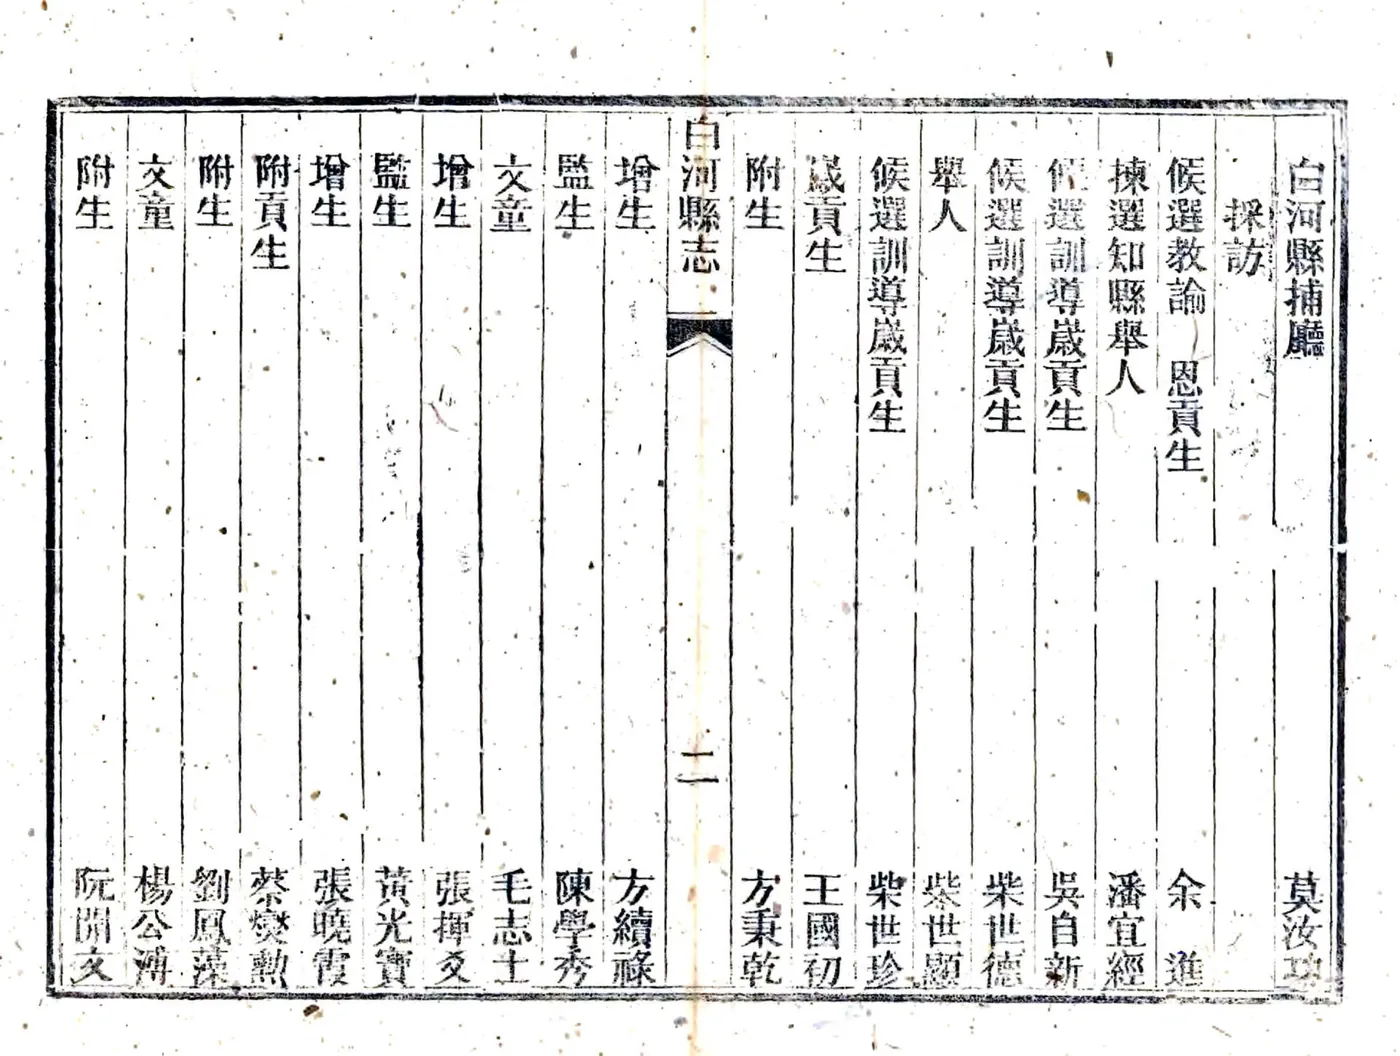 白河縣捕廳 莫汝功
採訪
候選教諭 恩貢生 余進
揀選知縣舉人 潘宜經
候選訓導歲貢生 吳自新
候選訓導歲貢生 柴世德
舉人 柴世顯
候選訓導歲貢生 柴世珍
歲貢生 王國初
附生 方秉乾
白河縣志 二
增生 方續祿
監生 陳學秀
文童 毛志士
增生 張揮文
監生 黃光寶
增生 張曉霞
附貢生 蔡燮勲
附生 劉鳳藻
文童 楊公溥
附生 阮開文